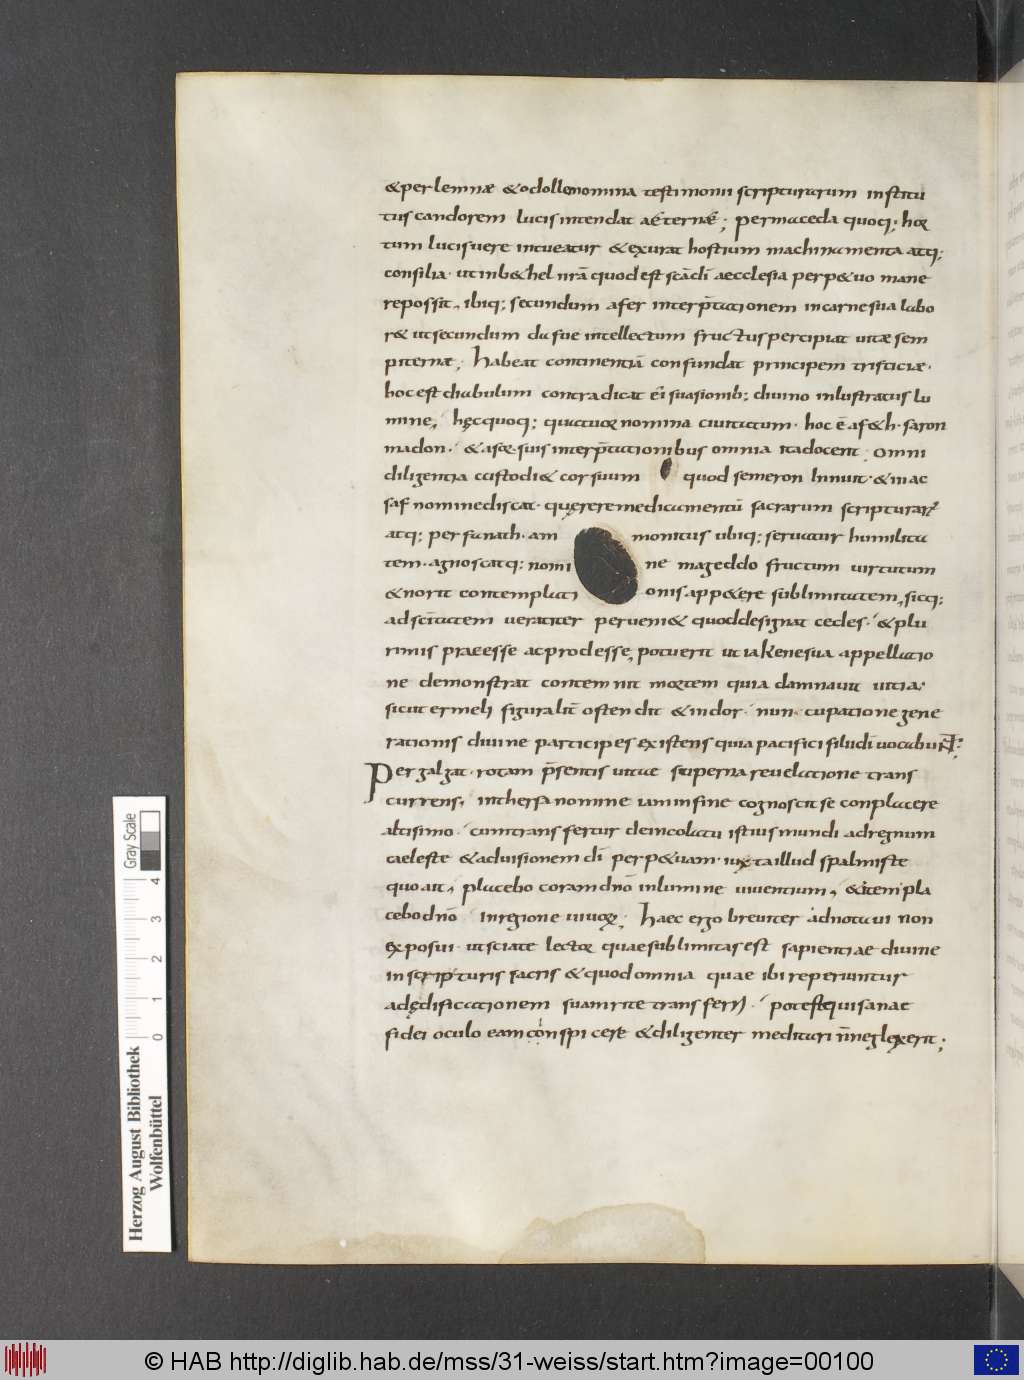 & per lemnae & odollo nomina testimonii scripturarum institu
tus candorem lucis intendat aeternae; per maceda quoq; hor
tum lucis vere intueatur & exurat hostium machinamenta atq;
consilia. ut in b&hel nrā quod est scā dī aecclesia perp&uo mane
re possit, ibiq; secundum afer interp̄tationem in carne sua labo
r& ut secundum dafue intellectum fructus percipiat uitae sem
piternae; habeat continentiā confundat principem tristiciae.
hoc est diabulum contradicat ei suasionib; diuino inlustratus lu
mine, hęc quoq; quattuor nomina ciuitatum. hoc ē af&h. saron
madon. & asor. suis interp̄tationibus omnia ita docent; omni
diligentia custodi& cor suum quod semeron Innuit. & in ac
saf nomine discat. quęrere medicamentū sacrarum scripturarꝝ
atq; per sanath. am monitus ubiq; seruatur humilita
tem. agnoscatq; nomi ne mageddo fructum uirtutum
& norit contemplati onis app&ere sublimitatem, sicq;
ad scītatem ueraciter perueni& quod designat cedes. & plu
rimis praeesse ac prodesse, potuerit ut iakenesua appellatio
ne demonstrat contemnit mortem quia damnauit uitia.
sicut ermeli figuraliī ostendit & in dor. nun. cupatione gene
rationis diuine participes existens quia pacifici filii dī uocabunt̄:
Per galgat. rotam p̄sentis uitae superna reuelatione trans
currens, in thersa nomine iam in fine cognoscit se conplacere
altisimo. cum transfertur de incolatu istius mundi ad regnum
caeleste & ad uisionem dī perp&uam. iuxta illud spalmiste
quo ait, placebo coram dnō in lumine uiuentium, & item pla
cebo dnō in regione uiuorꝝ. haec ergo breuiter adnotaui non
exposui. ut sciat& lector quae sublimitas est sapientiae diuine
in scripturis sacris & quod omnia quae ibi reperiuntur
ad ędificationem suam rite transferri. potest qui sanae
fidei oculo eam conspicere & diligenter meditari n̄ neglexerit;
Herzog August Bibliothek
Wolfenbüttel
Gray Scale
0 1 2 3 4
© HAB http://diglib.hab.de/mss/31-weiss/start.htm?image=00100